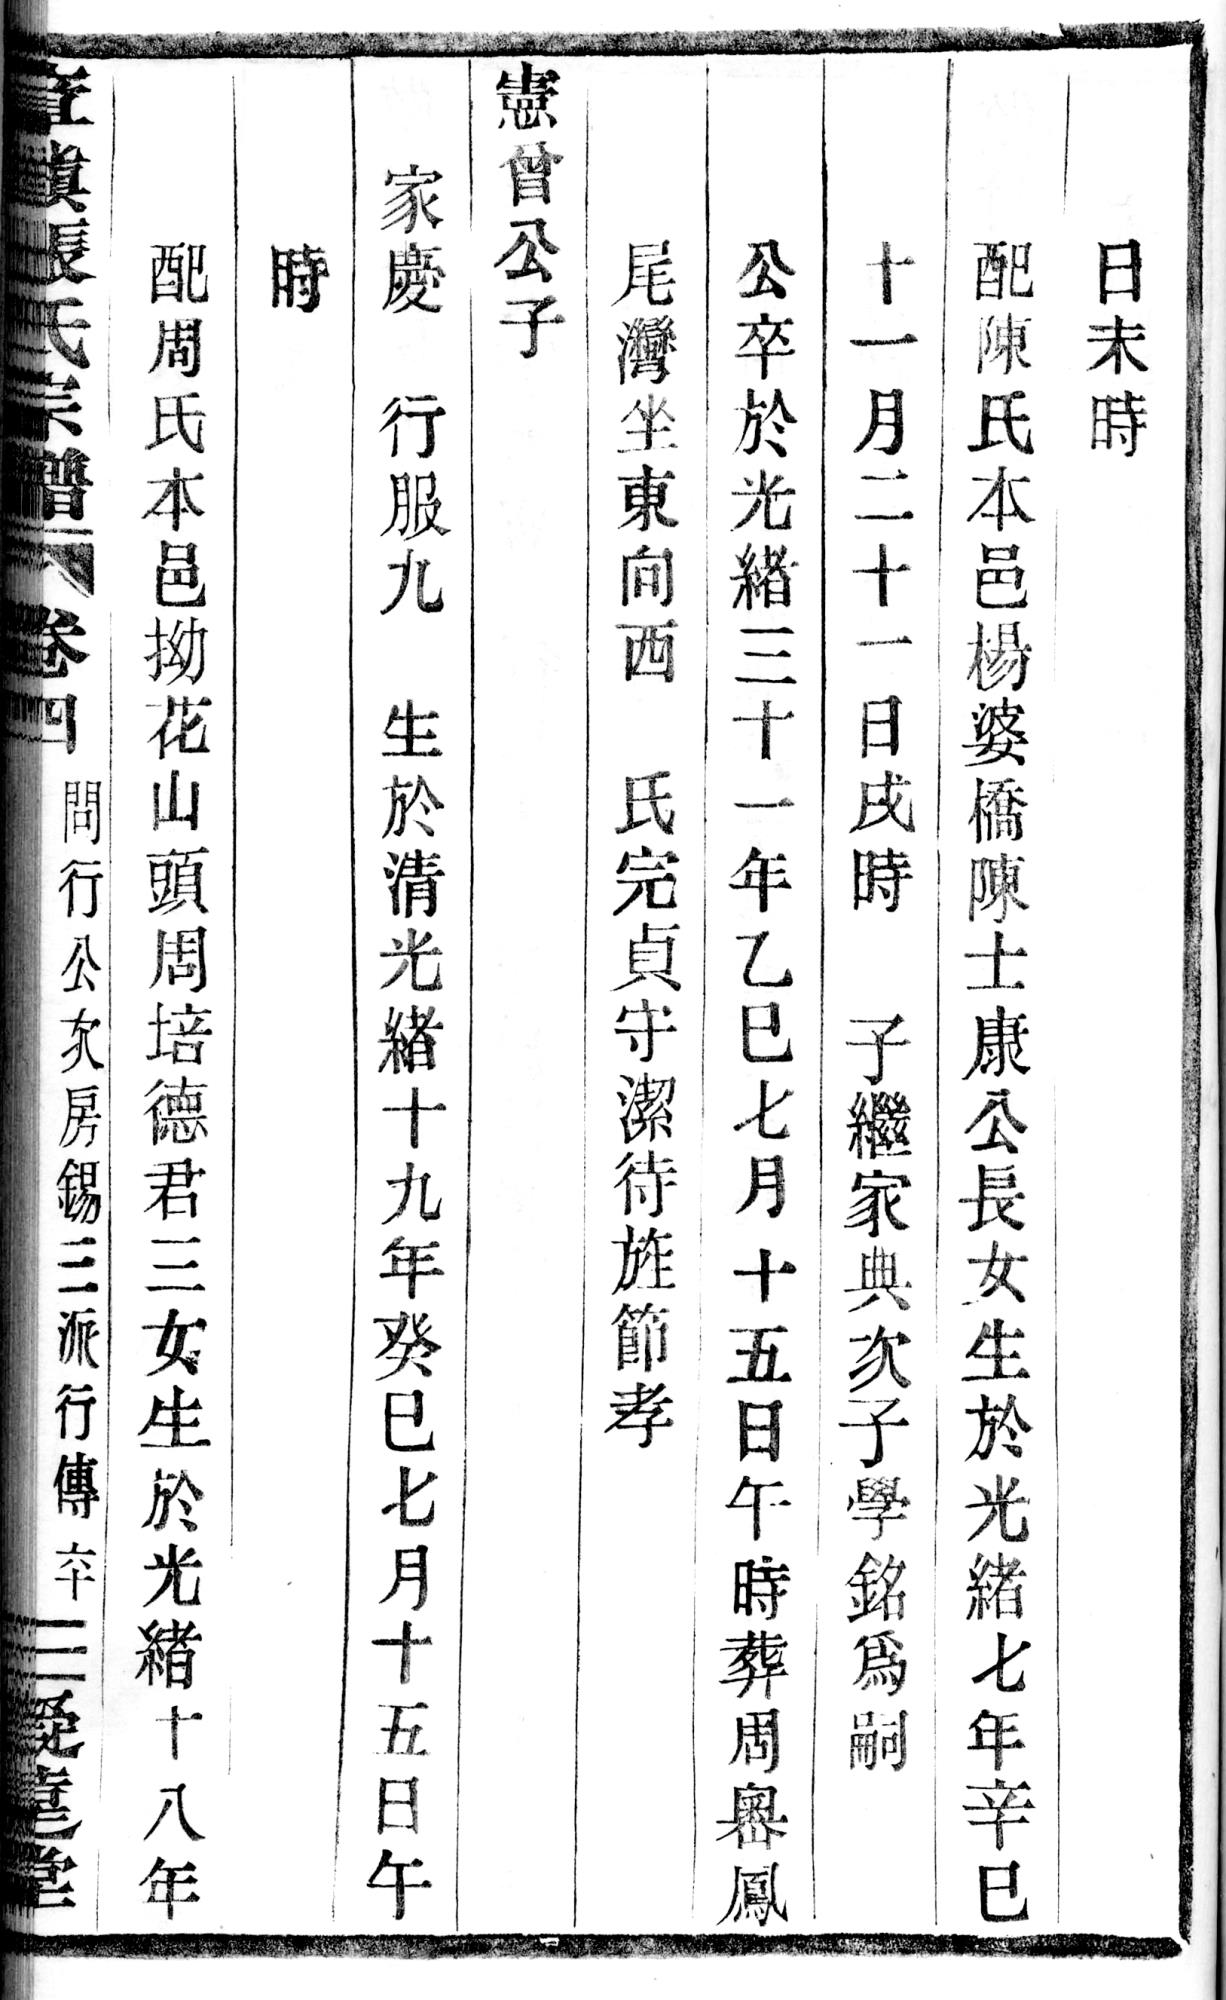 日未時
配陳氏本邑楊婆橋陳士康公長女生於光緒七年辛巳
十一月二十一日戌時　子繼家典次子學銘爲嗣
公卒於光緒三十一年乙巳七月十五日午時葬周嶴鳳
尾灣坐東向西　氏完貞守潔待旌節孝
憲曾公子
家慶　行服九　生於清光緒十九年癸巳七月十五日午
時
配周氏本邑拗花山頭周培德君三女生於光緒十八年
張氏宗譜　卷四　問行公次房錫三派行傳　六十　三堂